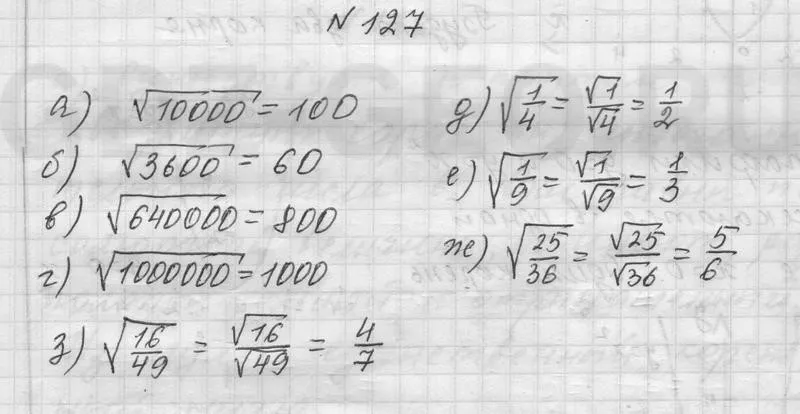 № 127
а) √10000 = 100
б) √3600 = 60
в) √640000 = 800
г) √1000000 = 1000
з) √(16/49) = √16/√49 = 4/7
д) √(1/4) = √1/√4 = 1/2
е) √(1/9) = √1/√9 = 1/3
ж) √(25/36) = √25/√36 = 5/6